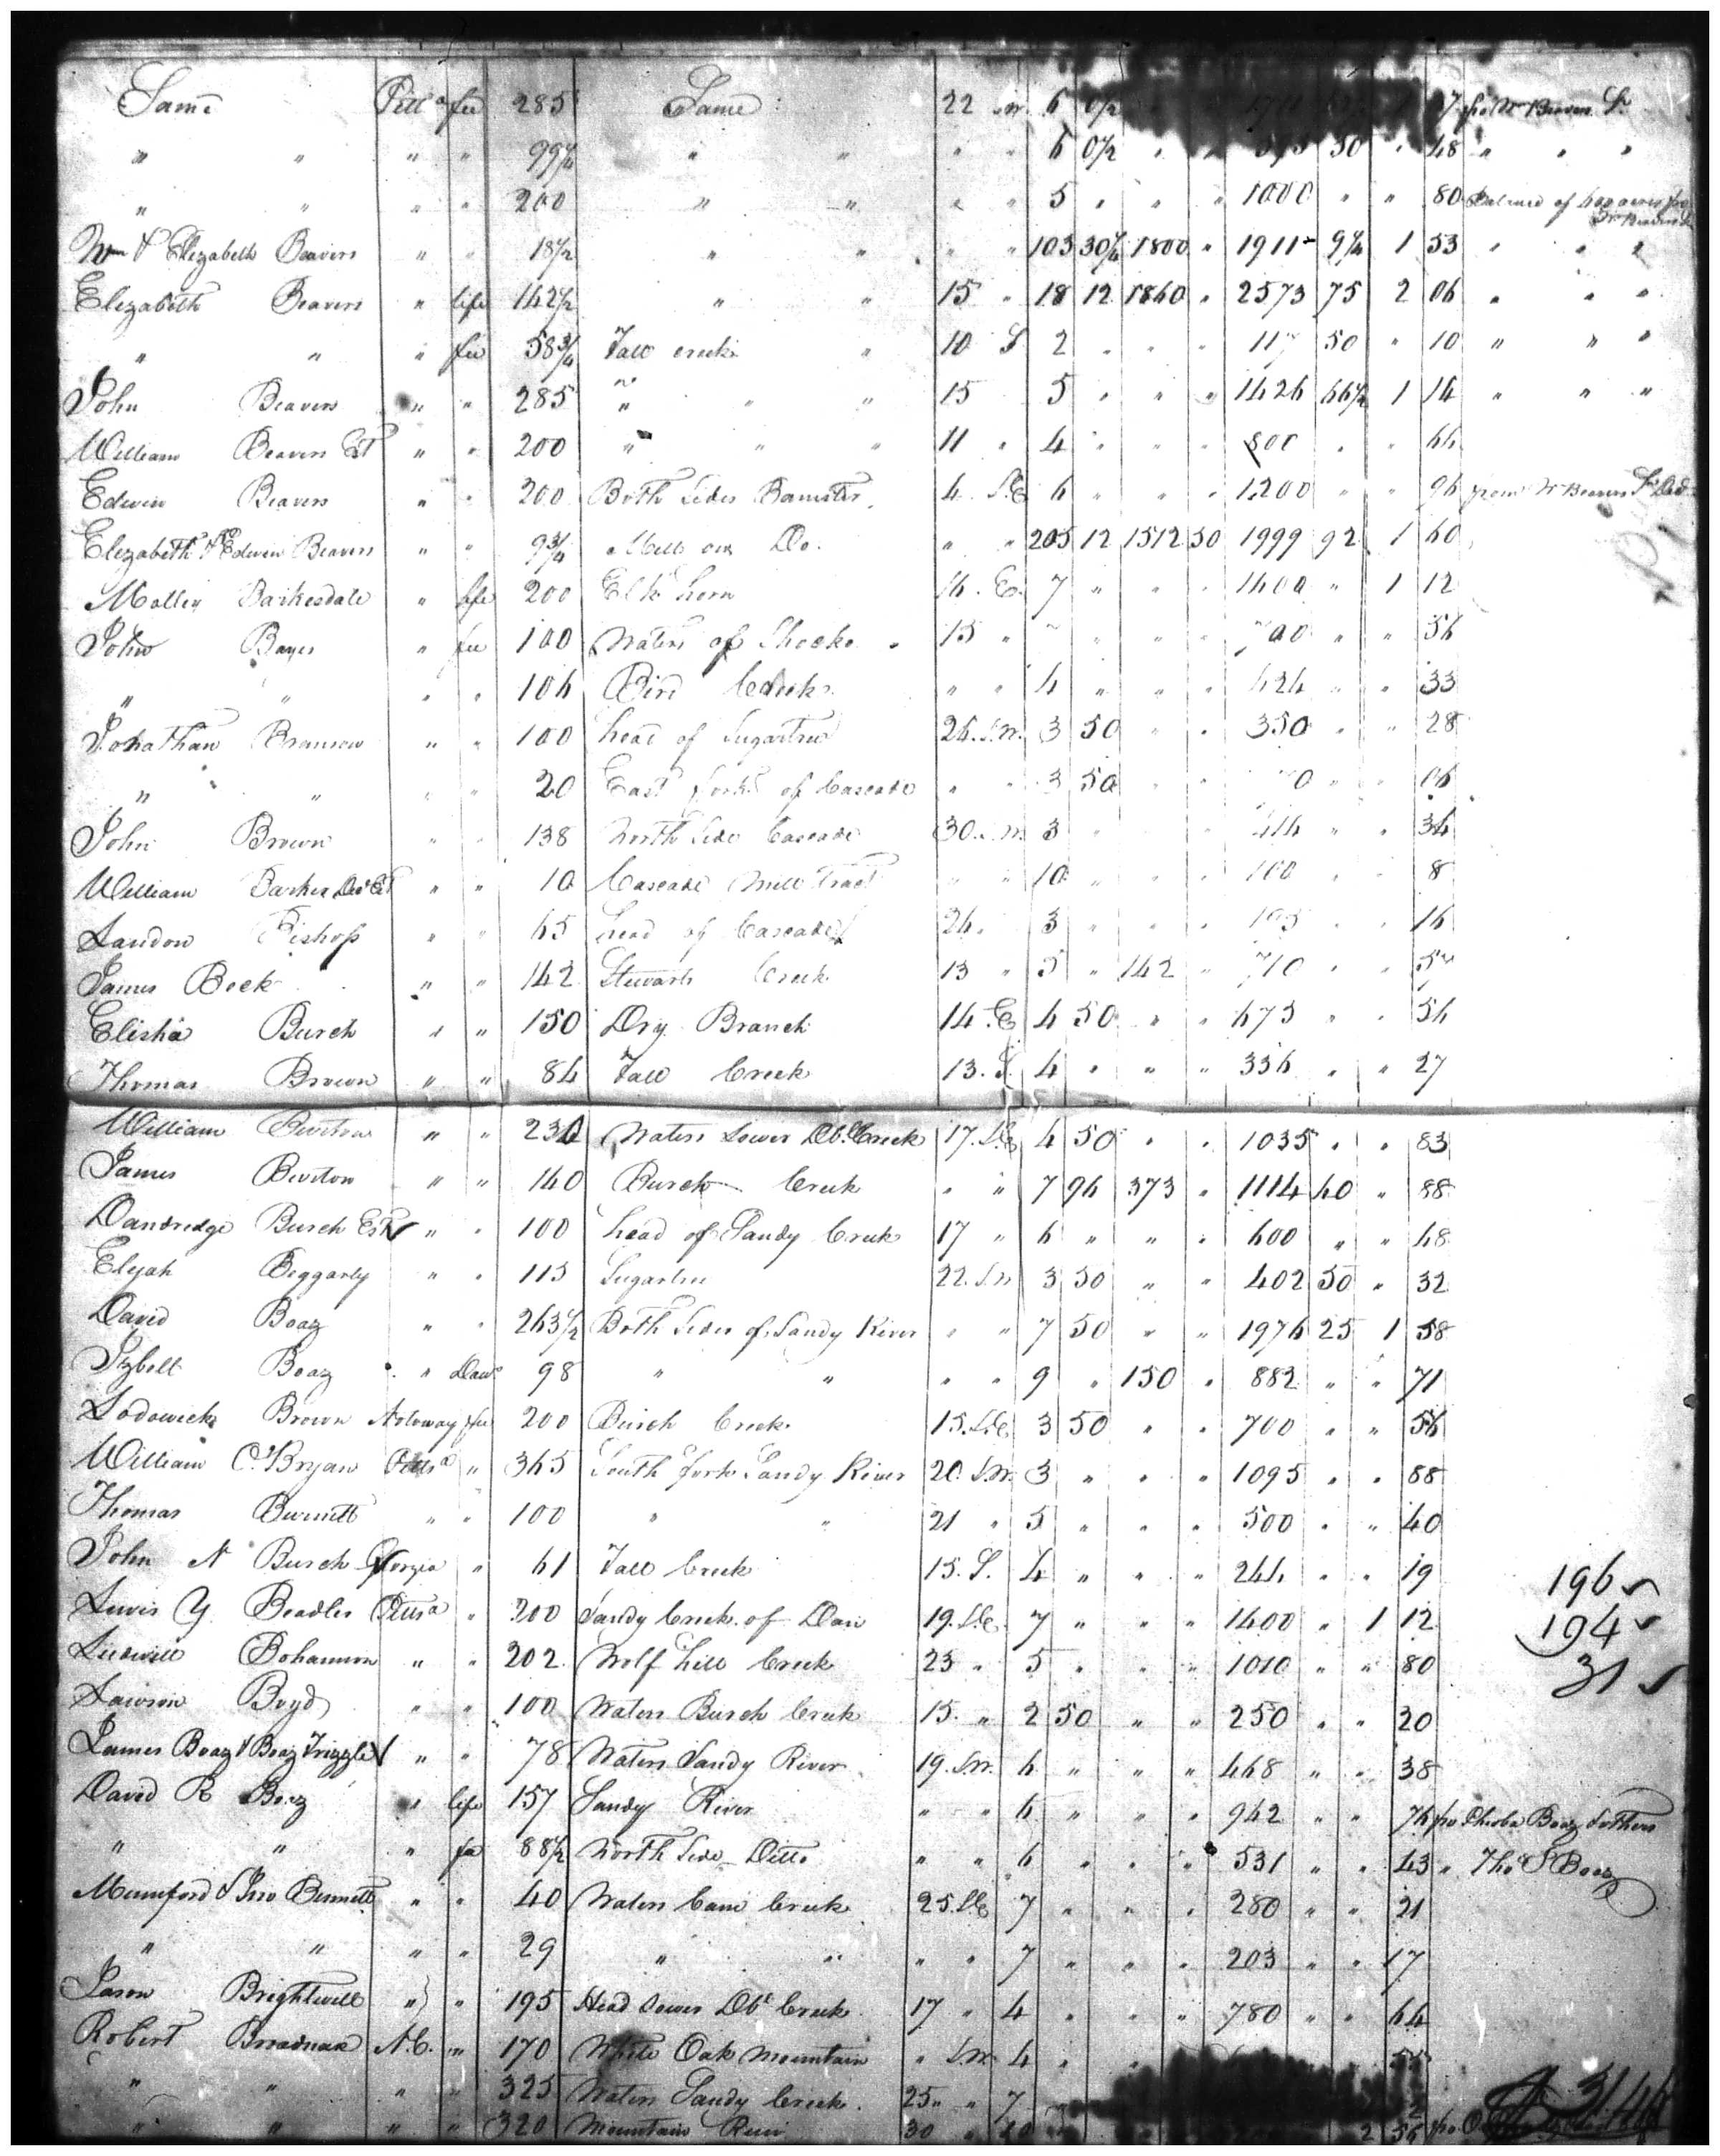 Same Pitts a fee 285 Same 22 W 6 0½ 37 fro Wm Beavers Sr
" " " " 99¼ " " " " 6 0½ " " 50 " 48 " " "
" " " " 200 " " " " 5 " " " 1000 " " 80 Balance of 400 acres fro Wm Beavers Sr
Wm & Elizabeth Beavers " " 18½ " " " " 103 30¼ 1800 " 1911 9¼ 1 53 " " "
Elizabeth Beavers " life 142½ " " 15 " 18 12 1860 " 2573 75 2 06 " " "
" " " fee 58¾ Fall creek " 10 S 2 " " " 117 50 " 10 " " "
John Beavers " " 285 " " " 15 5 " " " 1426 66½ 1 14 " " "
William Beavers Est " " 200 " " " 11 " 4 " " " 800 " " 64
Edwin Beavers " " 200 Both Sides Banister 4 S.E 6 " " " 1200 " " 96 from Wm Beavers Sr Decd
Elizabeth & Edwin Beavers " " 9¾ Mill on Do. " " 205 12 1512 50 1999 92 1 60
Molley Barkesdale " life 200 Elk horn 16 . E. 7 " " " 1400 " 1 12
John Bayes " fee 100 Waters of Shocko 15 " " " " 700 " " 56
" " " " 106 Bird Creek " " 4 " " " 424 " " 33
Jonathan Branson " " 100 head of Sugartree 26. S.W. 3 50 " " 350 " " 28
" " " " 20 East fork of Cascade " " 3 50 " " 70 " " 06
John Brown " " 138 North Side Cascade 30. S.W. 3 " " " 414 " " 34
William Barker Decd Est " " 10 Cascade Mill Tract " " 10 " " " 100 " " 8
Landon Bishop " " 65 head of Cascade 24. 3 " " " 195 " " 16
James Beck " " 142 Stewarts Creek 13 " 5 " 142 " 710 " " 57
Elisha Burch " " 150 Dry Branch 14. E 4 50 " " 675 " " 54
Thomas Brown " " 84 Fall Creek 13. S. 4 " " " 336 " " 27
William Burton " " 230 Waters Lower Db. Creek 17. S.E 4 50 " " 1035 " " 83
James Burton " " 140 Burch Creek " " 7 96 373 " 1114 40 " 88
Dandridge Burch Est " " 100 head of Sandy Creek 17 " 6 " " " 600 " " 48
Elijah Beggarly " " 115 Sugartree 22. S.W 3 50 " " 402 50 " 32
David Boaz " " 263½ Both Sides of Sandy River " " 7 50 " " 1976 25 1 58
Boaz " Daw 98 " " " " 9 " 150 " 882 " " 71
Lodowick Brown Notoway fee 200 Burch Creek 15. S.E. 3 50 " " 700 " " 56
William C. Bryan Pitts a " 365 South fork Sandy River 20. S.W. 3 " " " 1095 " " 88
Thomas Burnett " " 100 " " 21 " 5 " " " 500 " " 40
John N Burch Georgia " 61 Fall Creek 15. S. 4 " " " 244 " " 19
Lewis Y. Beadles Pitts a " 200 Sandy Creek of Dan 19. S.E. 7 " " " 1400 " 1 12
Bohannon " " 202 Wolf hill Creek 23 " 5 " " " 1010 " " 80
Lawson Boyd " " 100 Waters Burch Creek 15. " 2 50 " " 250 " " 20
James Boaz & Boaz Frizzle " " 78 Waters Sandy River 19. S.W. 6 " " " 468 " " 38
David R Boaz " life 157 Sandy River " " 6 " " " 942 " " 76 fro Boaz & others
" " " fee 88½ North Side Ditto " " 6 " " " 531 " " 43 " Thos S Boaz
Mumford & Jno Bennett " " 40 Waters Cane Creek 25. S.E 7 " " " 280 " " 21
" " " " 29 " " " " 7 " " " 203 " " 17
Jason Brightwell " " 195 Head Lower Db. Creek 17 " 4 " " " 780 " " 64
Robert Broadnax N.C. " 170 White Oak Mountain " S.W. 4 "
" " " " 325 Waters Sandy Creek 25 " " 7
" " " " 320 Mountain Run 30 " 10 2 56 fro
196
194
31